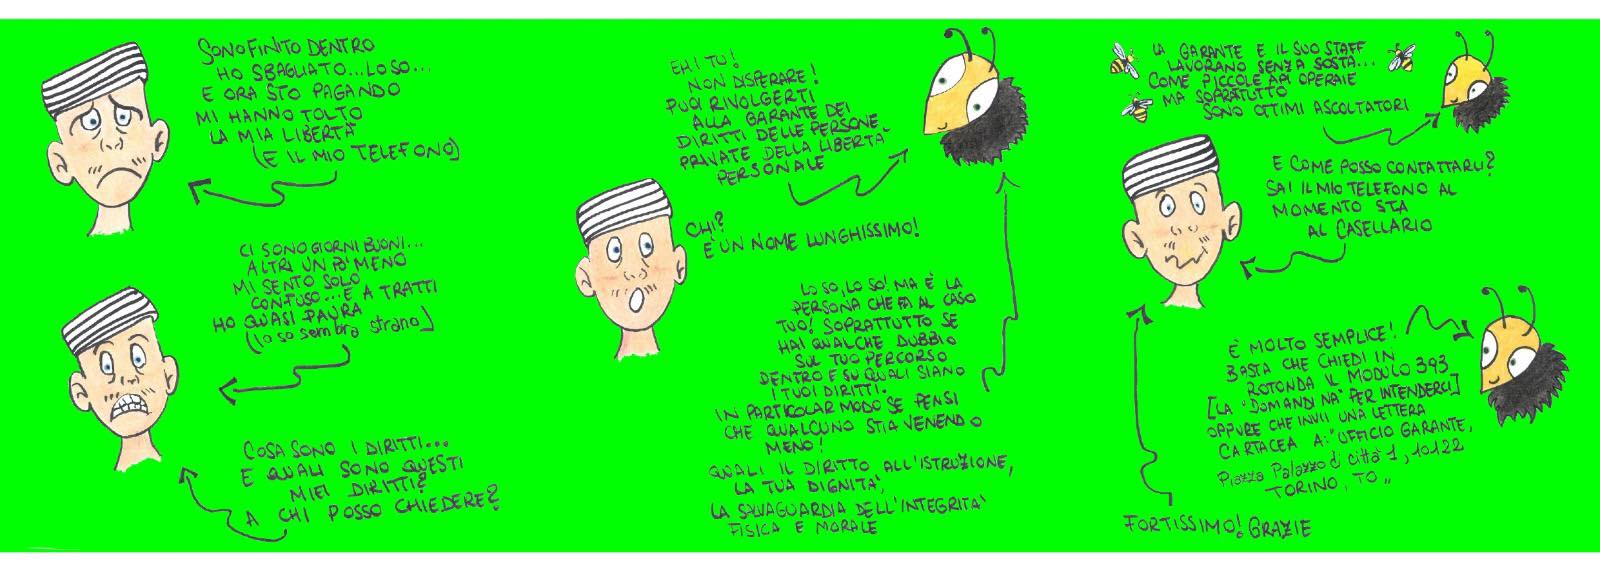 SONO FINITO DENTRO
HO SBAGLIATO...LO SO...
E ORA STO PAGANDO
MI HANNO TOLTO
LA MIA LIBERTÀ
(E IL MIO TELEFONO)
CI SONO GIORNI BUONI...
ALTRI UN PO' MENO
MI SENTO SOLO
CONFUSO...E A TRATTI
HO QUASI PAURA
(lo so sembra strano)
COSA SONO I DIRITTI...
E QUALI SONO QUESTI
MIEI DIRITTI?
A CHI POSSO CHIEDERE?
EHI TU!
NON DISPERARE!
PUOI RIVOLGERTI
ALLA GARANTE DEI
DIRITTI DELLE PERSONE
PRIVATE DELLA LIBERTÀ
PERSONALE
CHI?
E' UN NOME LUNGHISSIMO!
LO SO, LO SO! MA È LA
PERSONA CHE FA AL CASO
TUO! SOPRATTUTTO SE
HAI QUALCHE DUBBIO
SUL TUO PERCORSO
DENTRO E SU QUALI SIANO
I TUOI DIRITTI.
IN PARTICOLAR MODO SE PENSI
CHE QUALCUNO STIA VENENDO
MENO!
QUALI IL DIRITTO ALL'ISTRUZIONE,
LA TUA DIGNITA',
LA SALVAGUARDIA DELL'INTEGRITA'
FISICA E MORALE
LA GARANTE E IL SUO STAFF
LAVORANO SENZA SOSTA...
COME PICCOLE API OPERAIE
MA SOPRATUTTO
SONO OTTIMI ASCOLTATORI
E COME POSSO CONTATTARLI?
SAI IL MIO TELEFONO AL
MOMENTO STA
AL CASELLARIO
È MOLTO SEMPLICE!
BASTA CHE CHIEDI IN
ROTONDA IL MODULO 393
[LA "DOMANDINA" PER INTENDERCI]
OPPURE CHE INVII UNA LETTERA
CARTACEA A: "UFFICIO GARANTE,
Piazza Palazzo di città 1, 10122
TORINO, TO "
FORTISSIMO! GRAZIE